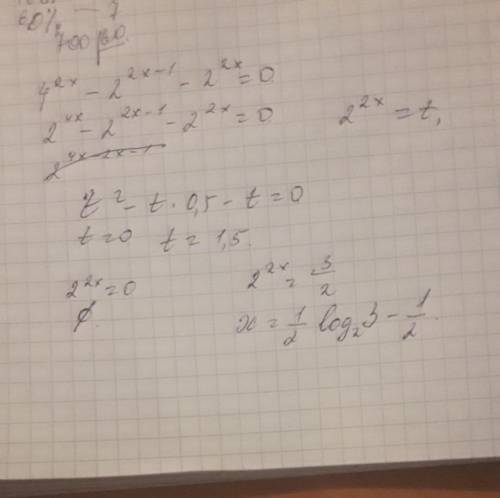 60% — 7
700 | 60
4^{2x} - 2^{2x-1} - 2^{2x} = 0
2^{4x} - 2^{2x-1} - 2^{2x} = 0    2^{2x} = t,
t^2 - t · 0,5 - t = 0
t = 0   t = 1,5.
2^{2x} = 0    2^{2x} = \frac{3}{2}
∅.    x = \frac{1}{2} log_2 3 - \frac{1}{2}.